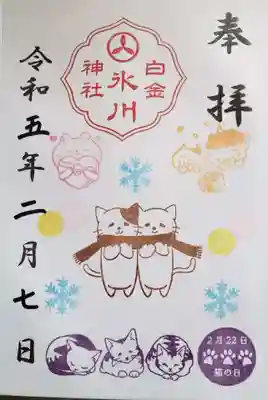 奉拝
白金
氷川
神社
令和五年二月七日
2月22日
猫の日